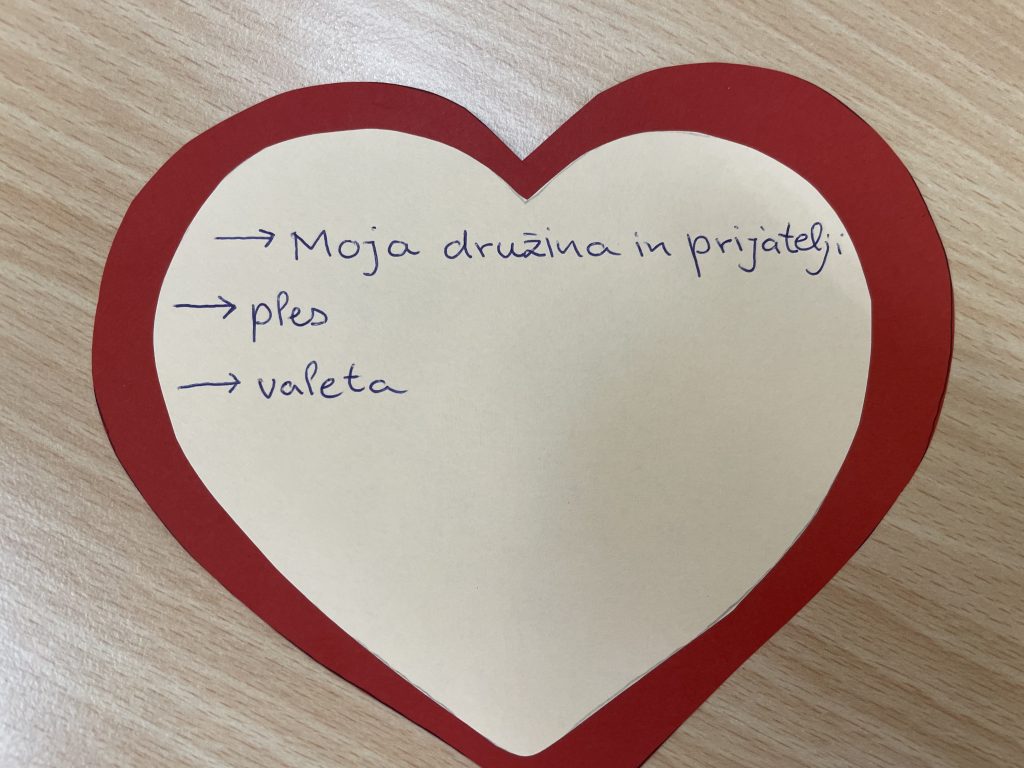 → Moja družina in prijatelji
→ ples
→ valeta